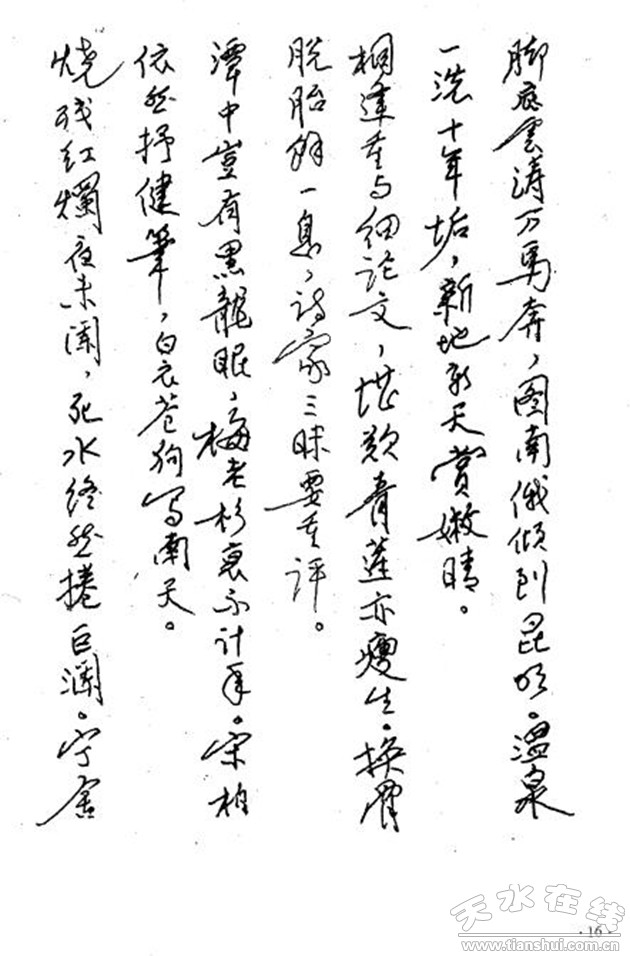 脚底雲涛万馬奔，图南俄倾到昆明。溫泉
一洗十年垢，新地新天賞嫩晴。
相逢重与细论文，堪歎青莲亦瘦生。换骨
脱胎餘一息，诗家三昧要重评。
潭中豈有黑龍眠，梅老杉衰不计年。宋柏
依然抒健筆，白衣苍狗写南天。
烧残红爛夜未阑，死水终然捲巨澜。宁舍
天水在线
www.tianshui.com.cn
·16·